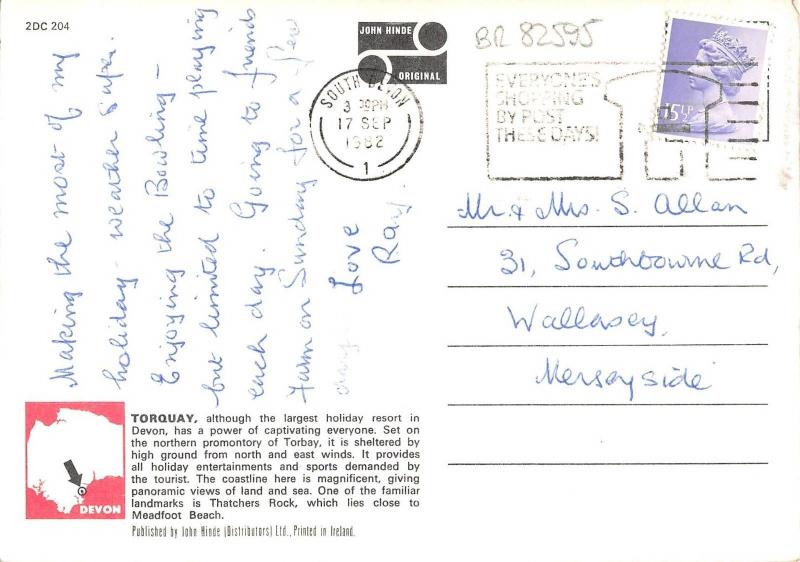 2DC 204
JOHN HINDE
ORIGINAL
BR 82595
SOUTH DEVON
3 30PM
17 SEP
1982
1
EVERYONE'S
SHOPPING
BY POST
THESE DAYS!
15½P
Making the most of my
holiday - weather super.
Enjoying the Bowling -
but limited to time playing
each day. Going to friends
farm on Sunday for a few
days.
Love
Ray.
Mr. & Mrs. S. Allan
31, Southbourne Rd,
Wallasey,
Merseyside
DEVON
TORQUAY, although the largest holiday resort in
Devon, has a power of captivating everyone. Set on
the northern promontory of Torbay, it is sheltered by
high ground from north and east winds. It provides
all holiday entertainments and sports demanded by
the tourist. The coastline here is magnificent, giving
panoramic views of land and sea. One of the familiar
landmarks is Thatchers Rock, which lies close to
Meadfoot Beach.
Published by John Hinde (Distributors) Ltd., Printed in Ireland.